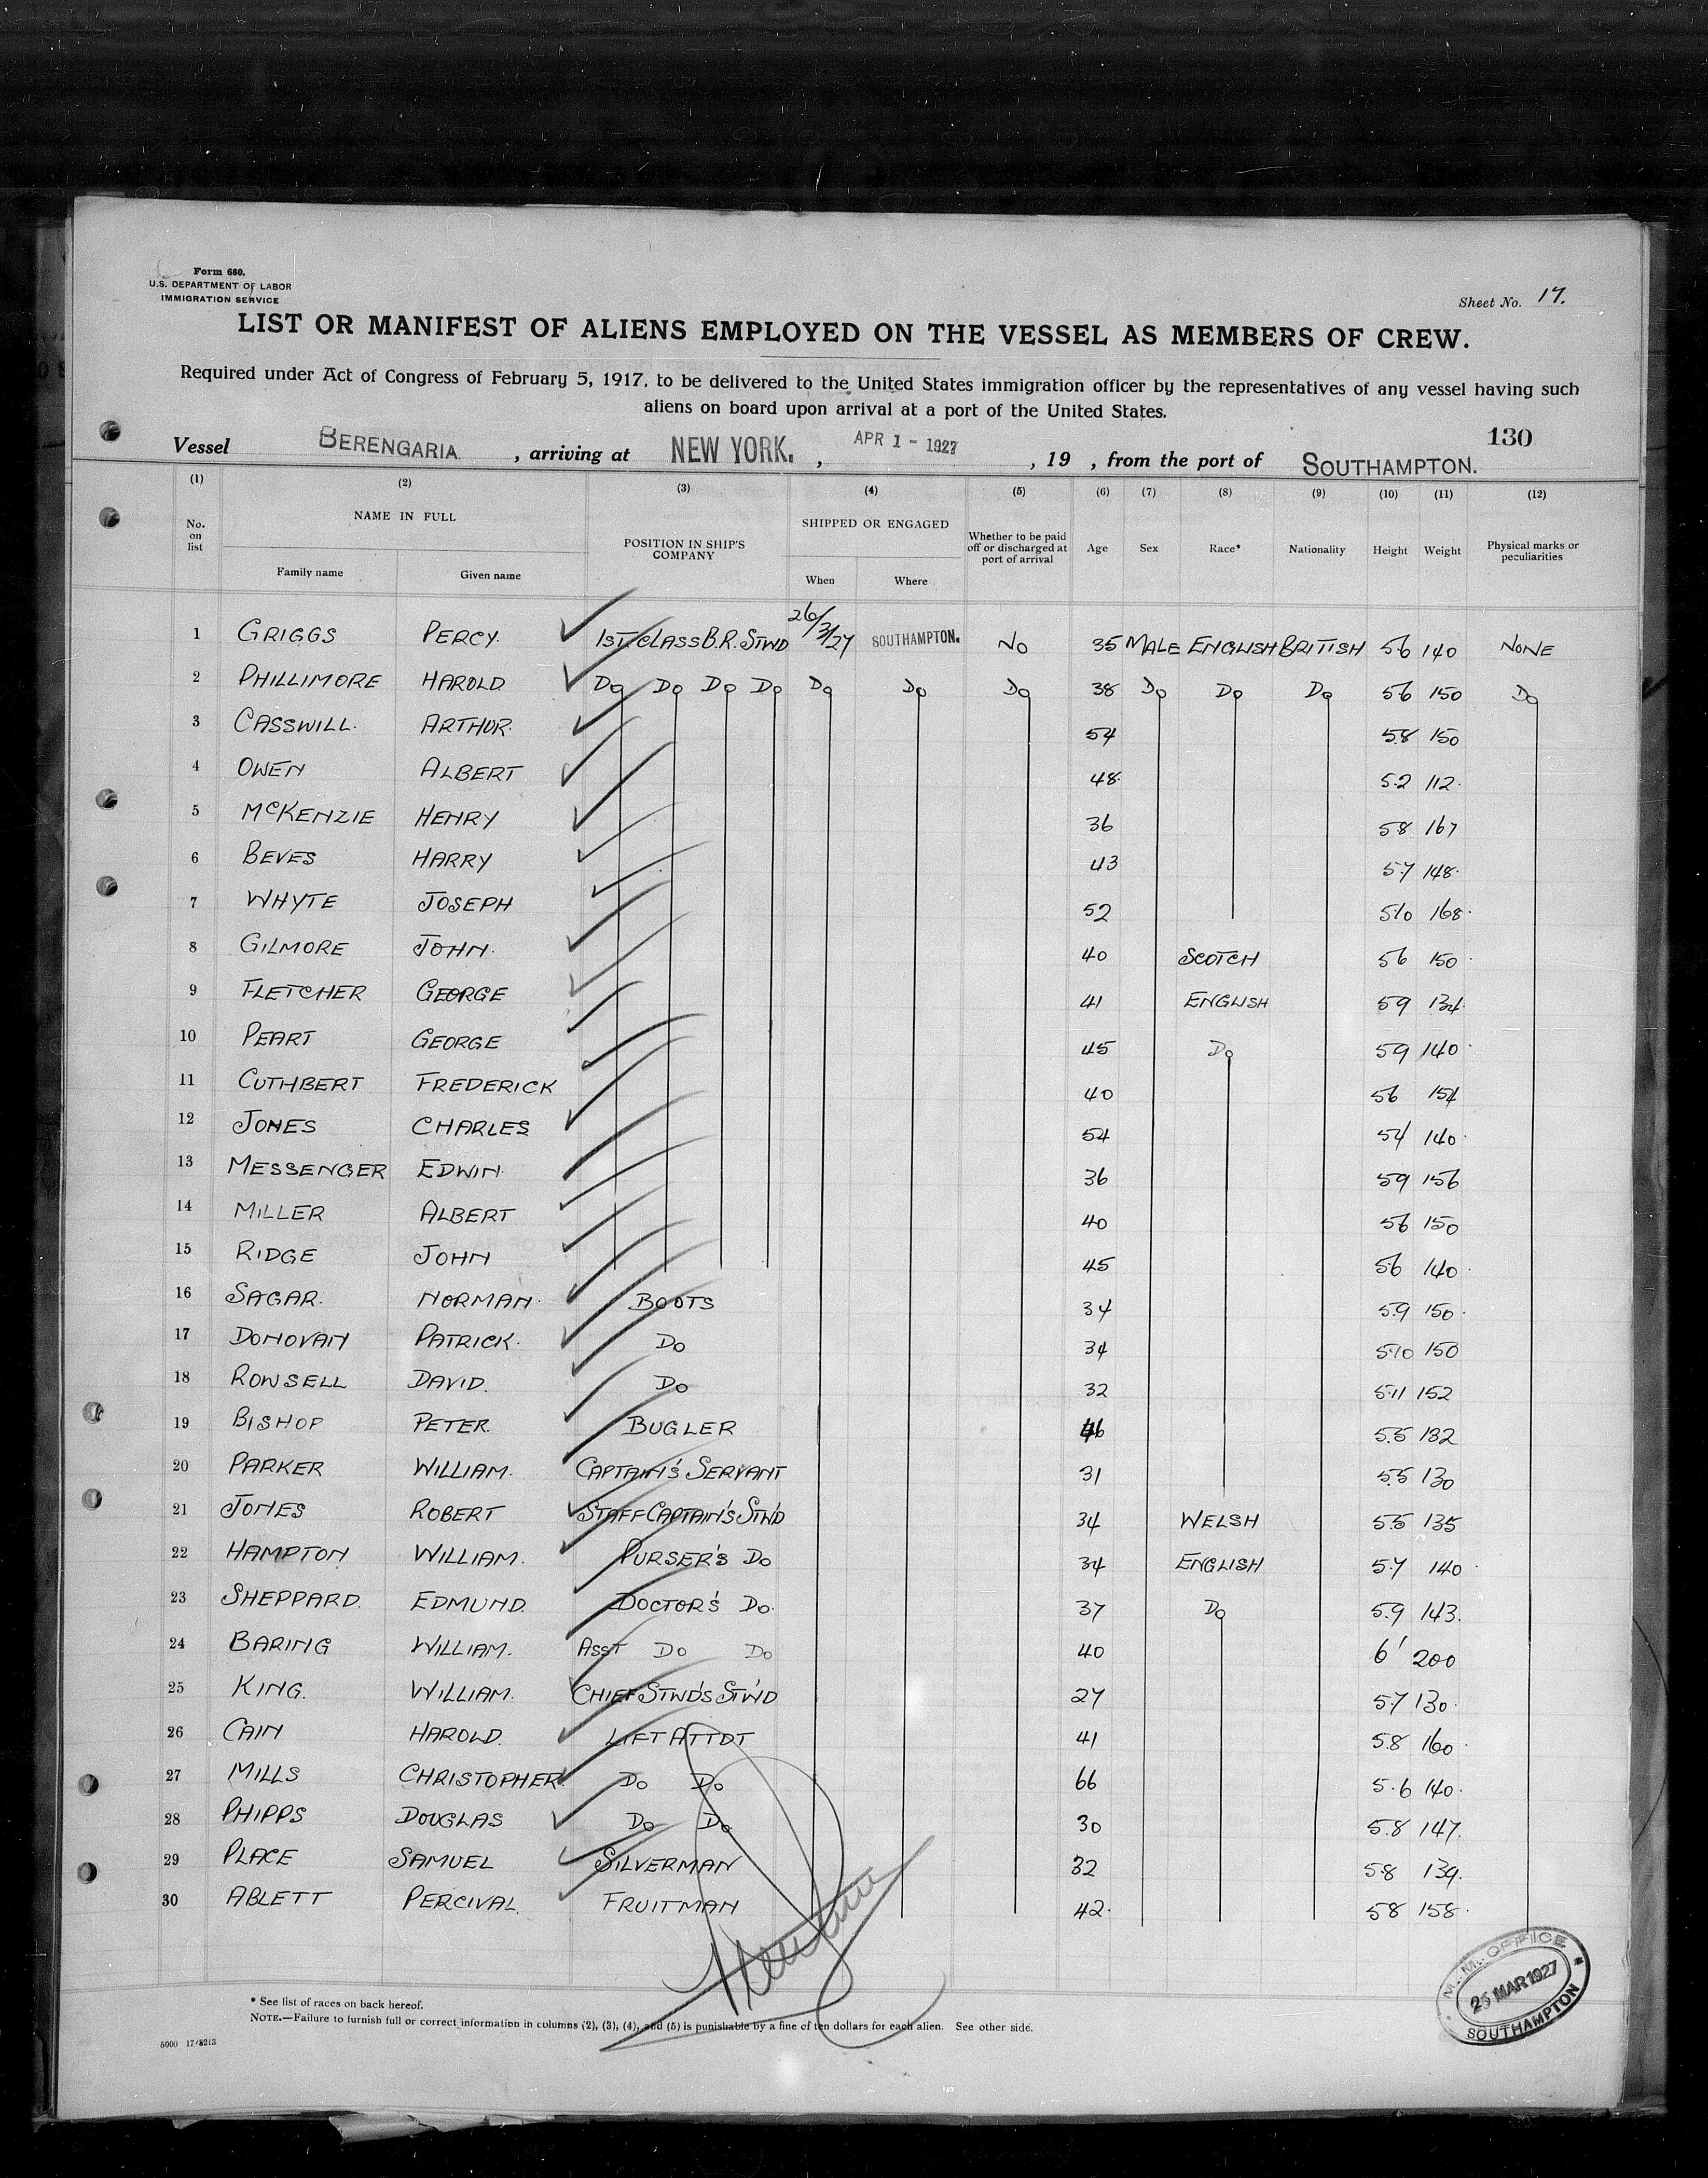 Form 680.
U.S. DEPARTMENT OF LABOR
IMMIGRATION SERVICE
Sheet No. 17.
LIST OR MANIFEST OF ALIENS EMPLOYED ON THE VESSEL AS MEMBERS OF CREW.
Required under Act of Congress of February 5, 1917, to be delivered to the United States immigration officer by the representatives of any vessel having such
aliens on board upon arrival at a port of the United States.
130
Vessel BERENGARIA , arriving at NEW YORK. , APR 1 - 1927 , 19 , from the port of SOUTHAMPTON.
(1) (2) (3) (4) (5) (6) (7) (8) (9) (10) (11) (12)
No. on list NAME IN FULL Family name Given name POSITION IN SHIP'S COMPANY SHIPPED OR ENGAGED When Where Whether to be paid off or discharged at port of arrival Age Sex Race* Nationality Height Weight Physical marks or peculiarities
1 GRIGGS PERCY. 1ST CLASS B.R. STWD 26/3/27 SOUTHAMPTON. NO 35 MALE ENGLISH BRITISH 56 140 NONE
2 PHILLIMORE HAROLD. DO DO DO DO DO DO DO 38 DO DO DO 56 150 DO
3 CASSWILL. ARTHUR. 54 58 150
4 OWEN ALBERT 48. 5.2 112.
5 McKENZIE HENRY 36 58 167
6 BEVES HARRY 43 5.7 148.
7 WHYTE JOSEPH 52 510 168.
8 GILMORE JOHN. 40 SCOTCH 56 150.
9 FLETCHER GEORGE 41 ENGLISH 59 134.
10 PEART GEORGE 45 DO 59 140.
11 CUTHBERT FREDERICK 40 56 154
12 JONES CHARLES 54 54 140.
13 MESSENGER EDWIN. 36 59 156
14 MILLER ALBERT 40 56 150
15 RIDGE JOHN 45 56 140.
16 SAGAR. NORMAN. BOOTS 34 5.9 150.
17 DONOVAN PATRICK. DO 34 5.10 150
18 ROWSELL DAVID. DO 32 5.11 152
19 BISHOP PETER. BUGLER 46 5.5 132
20 PARKER WILLIAM. CAPTAIN'S SERVANT 31 5.5 130
21 JONES ROBERT STAFF CAPTAIN'S STWD 34 WELSH 5.5 135
22 HAMPTON WILLIAM. PURSER'S DO 34 ENGLISH 5.7 140.
23 SHEPPARD. EDMUND. DOCTOR'S DO. 37 DO 5.9 143.
24 BARING WILLIAM. ASST DO DO 40 6' 200
25 KING. WILLIAM. CHIEF STWD'S STWD 27 5.7 130.
26 CAIN HAROLD. LIFT ATTDT 41 5.8 160.
27 MILLS CHRISTOPHER. DO DO 66 5.6 140.
28 PHIPPS DOUGLAS DO DO 30 5.8 147.
29 PLACE SAMUEL SILVERMAN 32 5.8 139.
30 ABLETT PERCIVAL. FRUITMAN 42. 58 158.
M.M. OFFICE
25 MAR 1927
SOUTHAMPTON
* See list of races on back hereof.
NOTE.—Failure to furnish full or correct information in columns (2), (3), (4), and (5) is punishable by a fine of ten dollars for each alien. See other side.
5000 17/8213